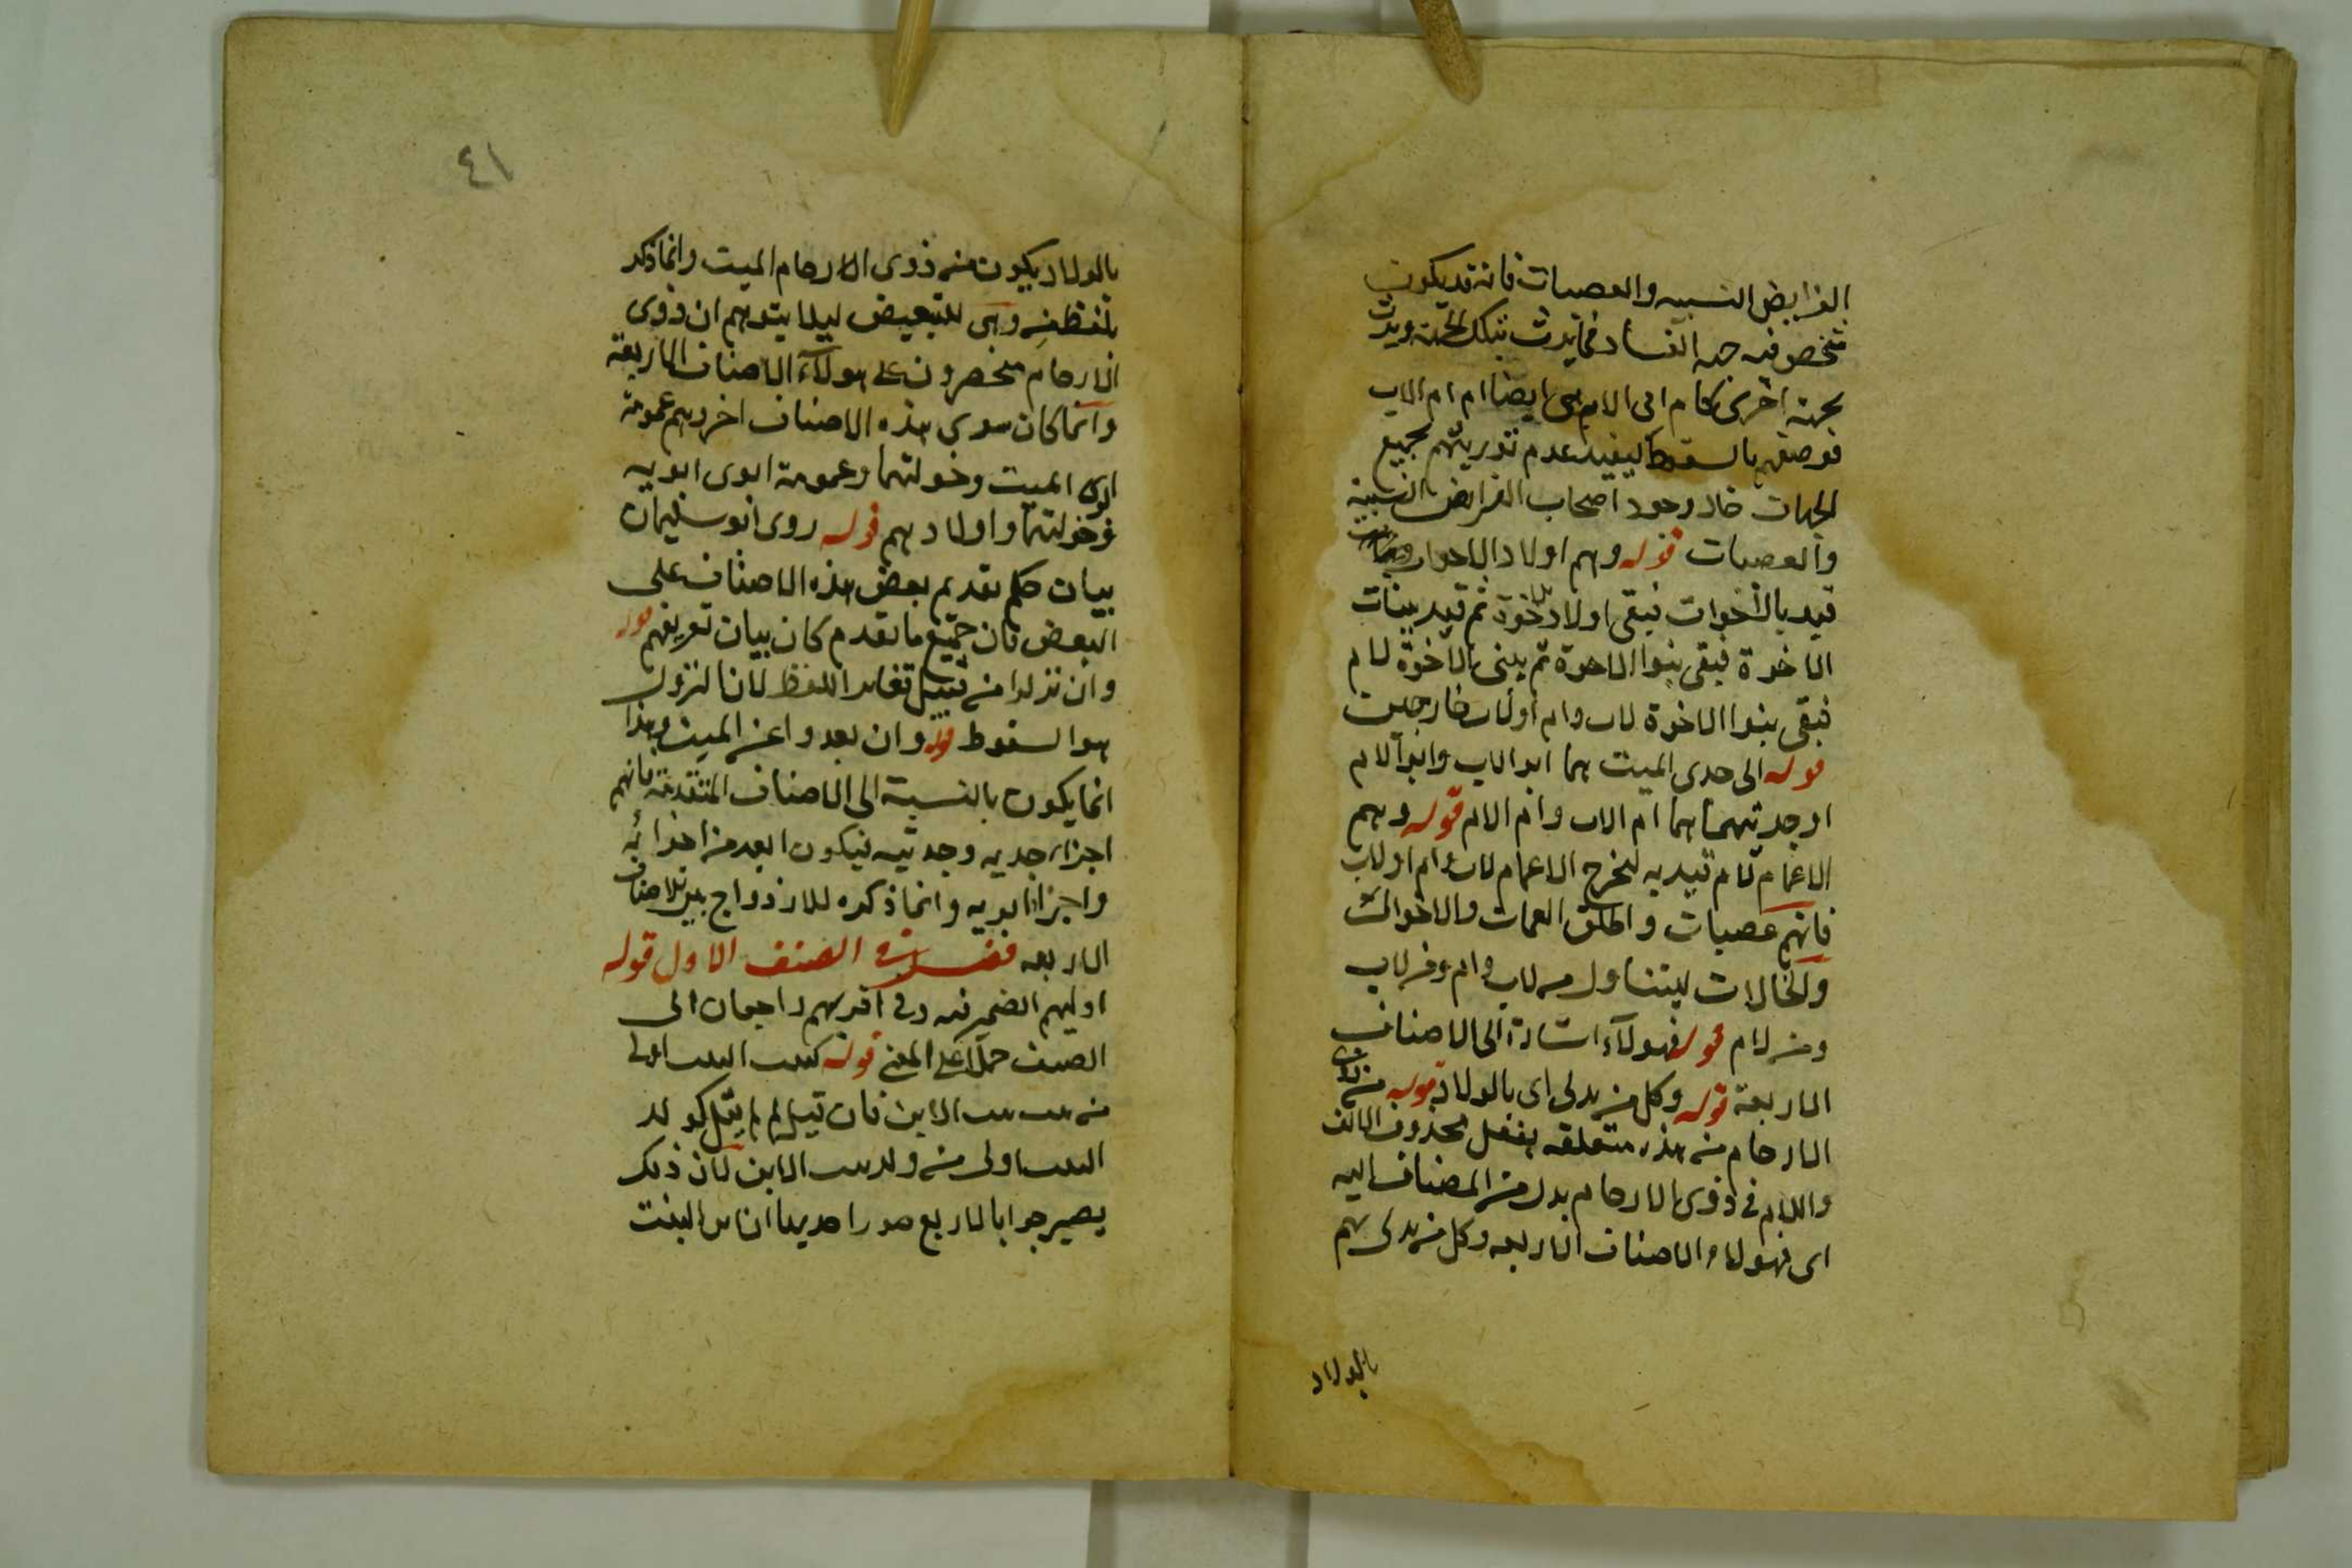 الفرايض النسبيه والعصبات فانه قد يكون
شخص فيه جهه الفساد فما يرث بتلك الجهة ويرث
بجهة اخرى كام ابى الام هى ايضا ام ام الاب
فوصفهم بالسقوط ليفيد عدم توريثهم بجميع
الجهات حال وجود اصحاب الفرايض النسبية
والعصبات قوله وهم اولاد الاخوات
قيد بالاخوات فبقى اولاد الاخوة ثم قيد ببنات
الاخوة فبقى بنوا الاخوة ثم ببنى الاخوة لام
فبقى بنوا الاخوة لاب وام او لاب خارجين
قوله الى جدى الميت هما ابو الاب وابو الام
او جدتيهما هما ام الاب وام الام قوله وهم
الاعمام لام قيد به ليخرج الاعمام لاب وام او لاب
فانهم عصبات واطلق العمات والاخوال
والخالات ليتناول من لاب وام ومن لاب
ومن لام قوله فهولاء اشارة الى الاصناف
الاربعة قوله وكل من يدلى اى بالولاد قوله من ذوى
الارحام من هذه متعلقه بفعل محذوف الالف
واللام فى ذوى الارحام بدل من المضاف اليه
اى فهولاء الاصناف الاربعه وكل من يدلى بهم
بالولاد
٤١
بالولاد يكون من ذوى الارحام الميت وانما ذكر
بلفظ من وهى للتبعيض ليلا يتوهم ان ذوى
الارحام منحصرون على هولاء الاصناف الاربعة
وانما كان سوى هذه الاصناف اخر وهم عمومة
ابوى الميت وخولتهما وعمومة ابوى ابويه
وخولتهما واولادهم قوله روى ابو سليمان
بيان حكم تقديم بعض هذه الاصناف على
البعض فان جميع ما تقدم كان بيان تعريفهم قوله
وان نزلوا من قبيل تغاير اللفظ لان النزول
هو السقوط قوله وان بعدوا عن الميت وهذا
انما يكون بالنسبة الى الاصناف المتقدمة فانهم
اجزاء جديه وجدتيه فيكون ابعد من اجزائه
واجزا ابويه وانما ذكره للازدواج بين الاصناف
الاربعه فصل فى الصنف الاول قوله
اوليهم الضمير فيه وفى اقربهم راجعان الى
الصنف حملا على المعنى قوله كبنت البنت اولى
من بنت بنت الابن فان قيل لم لم يقل كولد
البنت اولى من ولد بنت الابن لان ذلك
يصير جوابا لاربع صور احديها ان ابن البنت